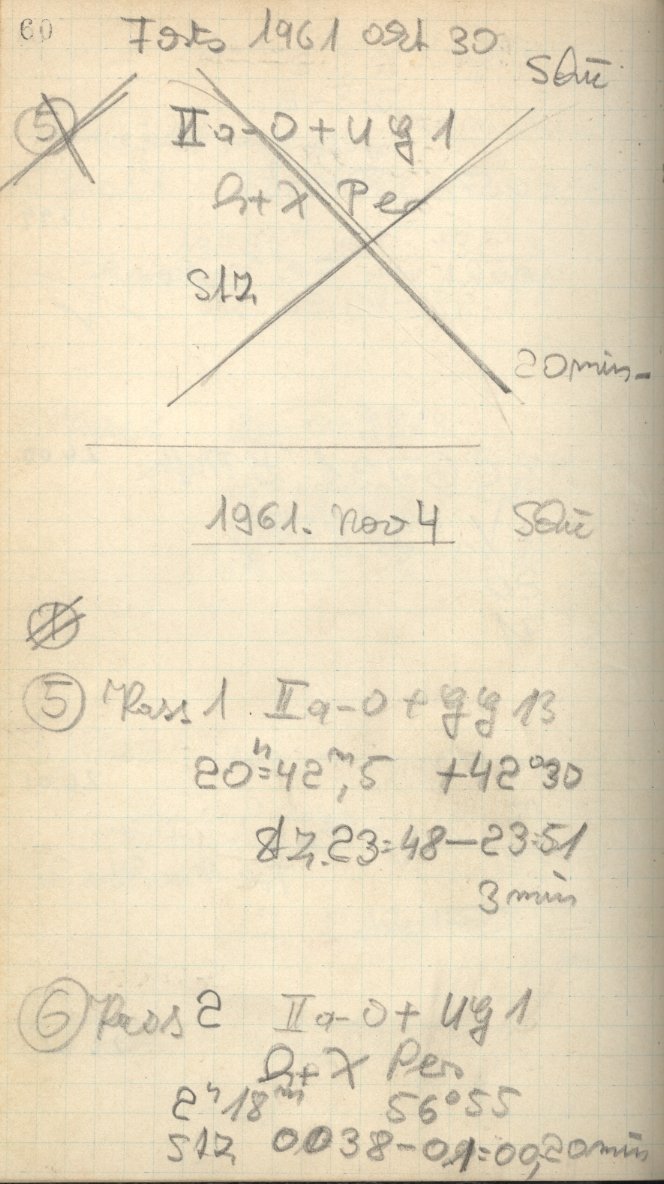 60
Forts 1961 okt 30
SBü
5
IIa-O + UG 1
h+χ Per
StZ
20 min
1961. Nov 4 SBü
1
5 Kass 1 IIa-O + GG 13
20ʰ=42ᵐ,5 +42°30
StZ. 23=48—23=51
3 min
6 Kass 2 IIa-O + UG 1
h+χ Per
2ʰ18ᵐ 56°55
StZ 0038—01=00, 20 min